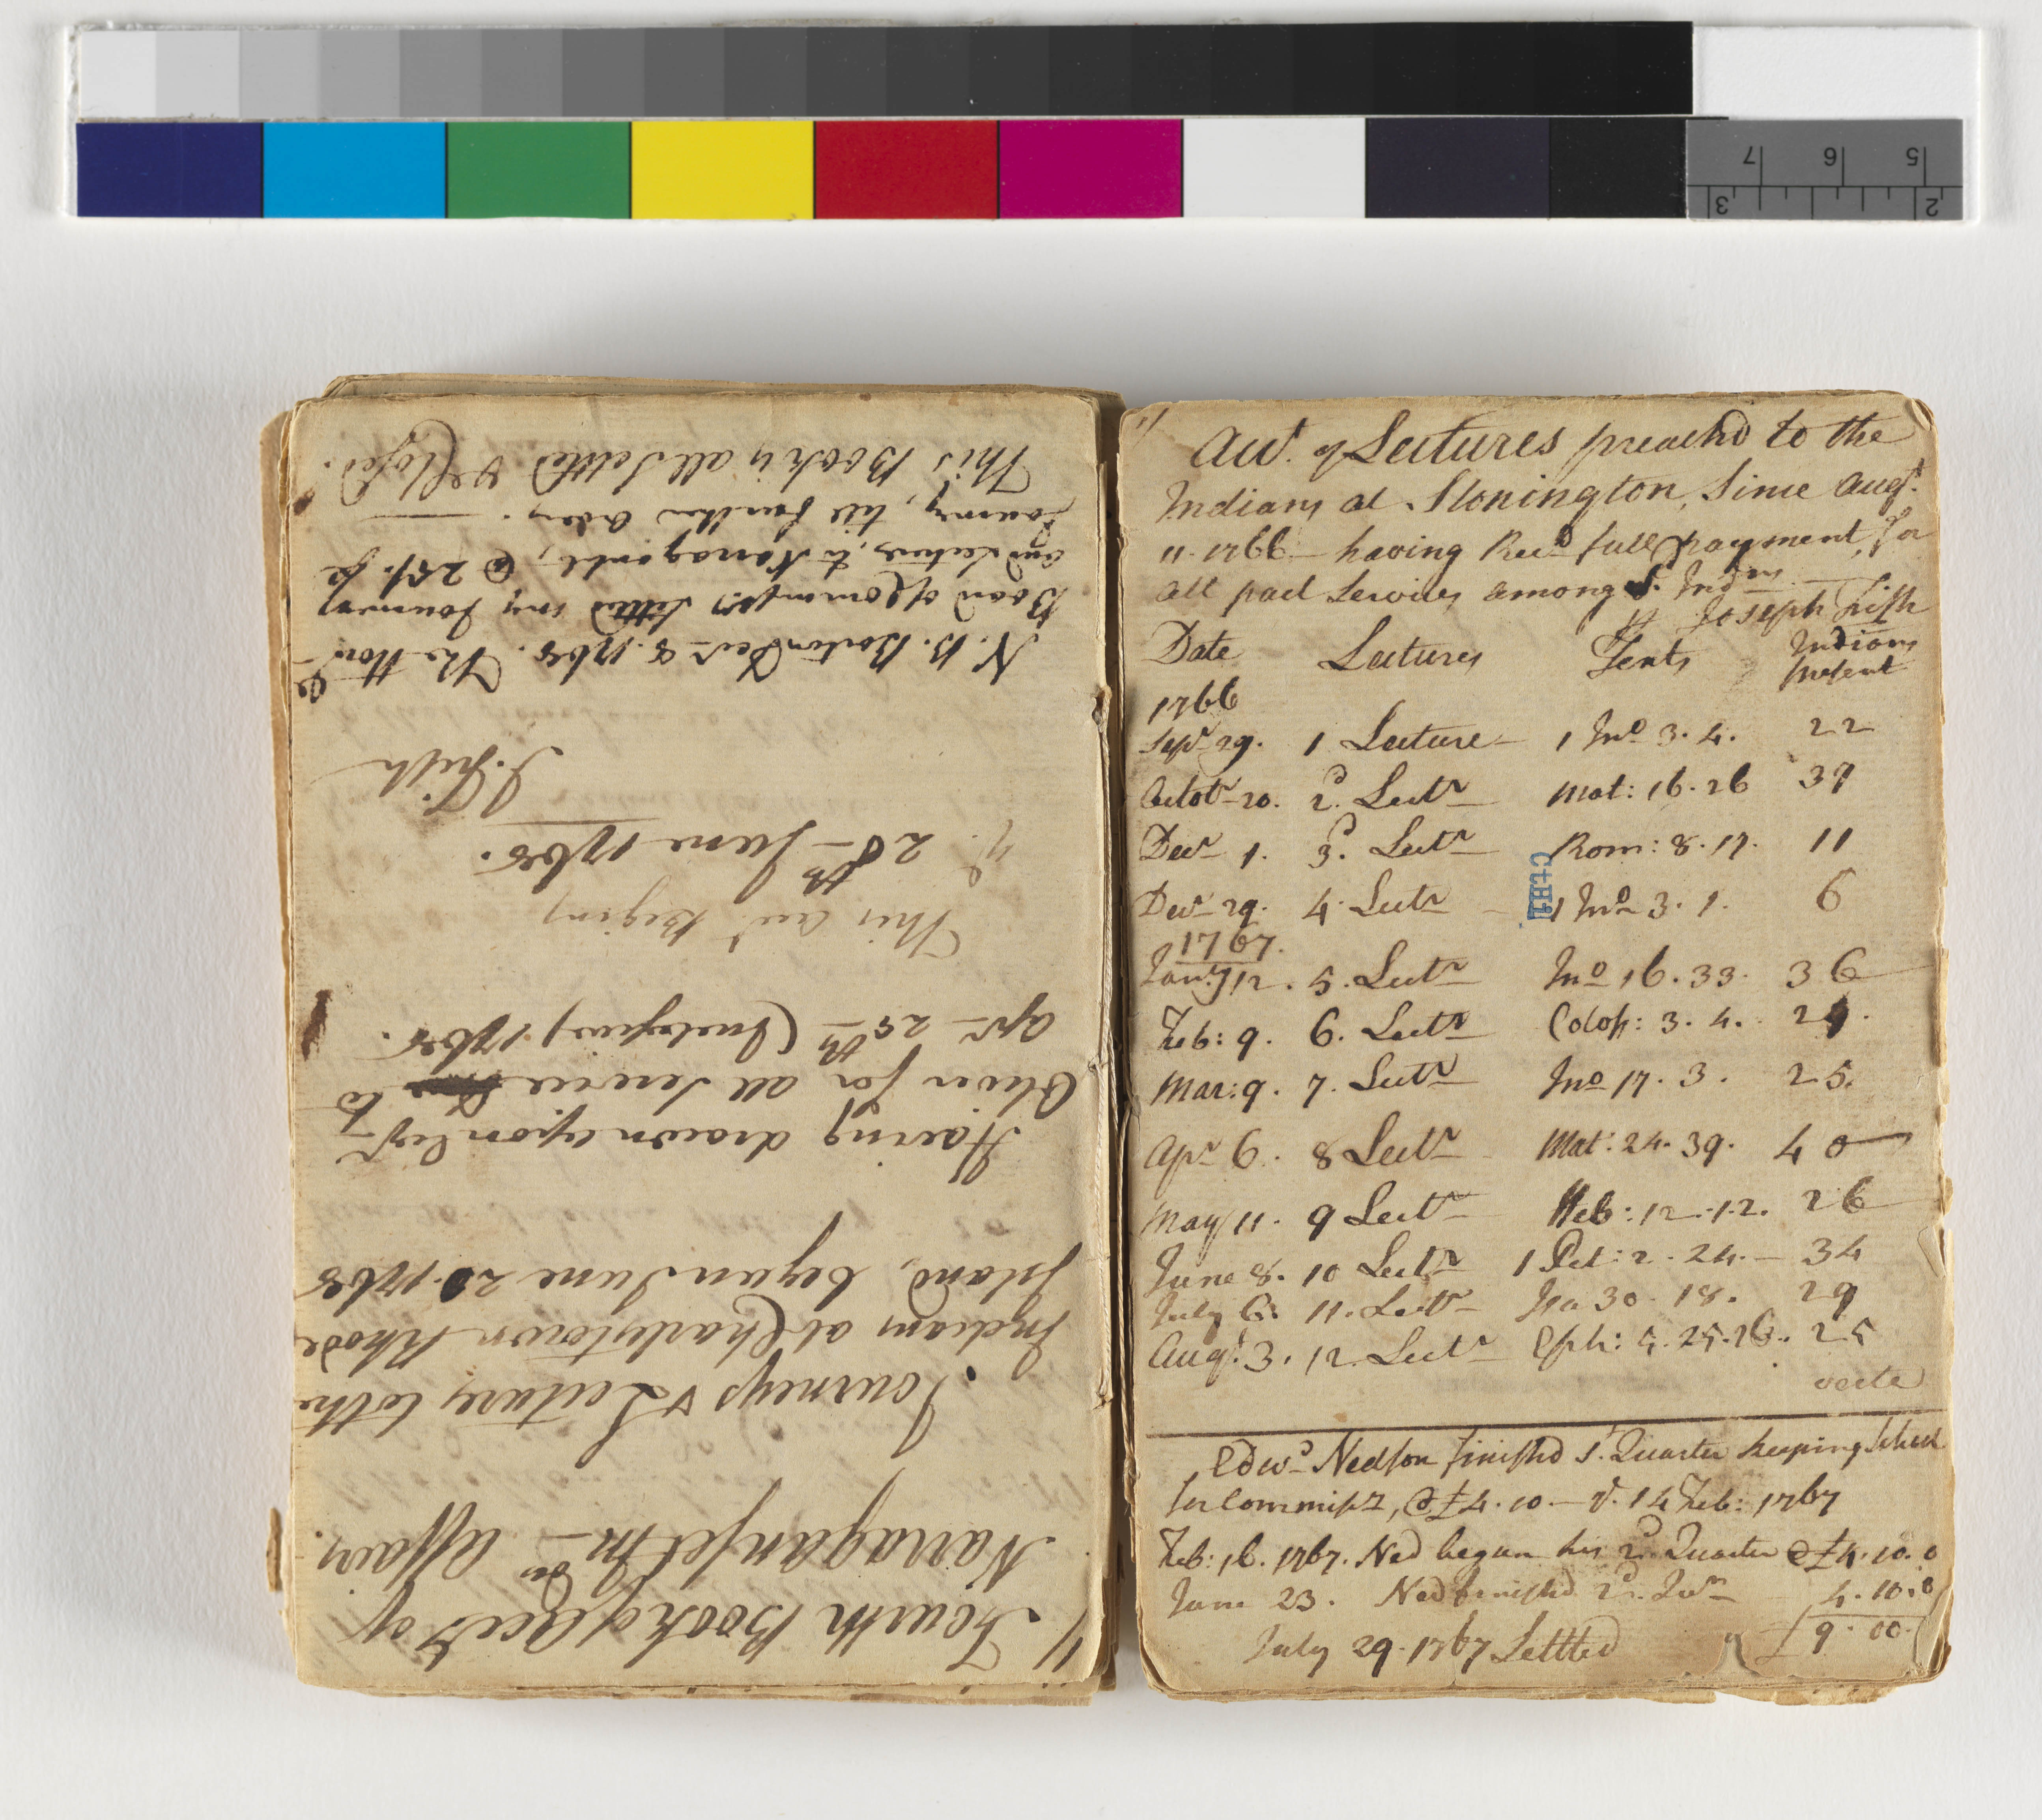 Fourth Book of Acct of
Narraganset Inn Affairs.
Journeys & Lectures to the
Indians at Charlestown Rhode
Island, began June 20. 1768
Having drawn upon
Oliver for all Service to
Apr 25th (Inclusive) 1768.
This Acct Begins
28th June 1768.
J. Fish
N. B. Boston Decr 8. 1768. The Honle
Board of Commissrs settled my Journeys
and Lectures, to Narragansett, @ 28/ pr
Journy, till further Order.
This Book is all Settled & Closed.
Acct. of Lectures preach'd to the
Indians at Stonington, Since Augt.
11. 1766 having Recd full payment for
all past Services among sd. Indns
pr Joseph Fish
Date Lectures Texts Indians present
1766
Sepr 29. 1 Lecture 1 Jno 3. 4. 22
Octobr 20. 2d. Lectr Mat: 16. 26 37
Decr 1. 3d. Lectr Rom: 8. 17. 11
Decr 29. 4. Lectr 1 Jno 3. 1. 6
1767.
Jany 12. 5. Lectr Jno 16. 33. 36
Feb: 9. 6. Lectr Coloss: 3. 4. 29.
Mar: 9. 7. Lectr Jno 17. 3. 25.
Apr 6. 8 Lectr Mat: 24. 39. 40
May 11. 9 Lectr Heb: 12. 12. 26
June 8. 10 Lectr 1 Pet: 2. 24. 34
July 6. 11. Lectr Isa 30. 18. 29
Augt. 3. 12. Lectr Eph: 5. 25. 26. 25
verte
Edwd Nedson finishd 1st Quarter keeping School
for Commissrs, @ £4. 10. 14 Feb: 1767
Feb: 16. 1767. Ned began his 2d Quarter @ £4. 10. 0
June 23. Ned finishd 2d. Qur 4. 10. 0
July 29. 1767 Settled £9. 00.
CtHi
7 6 5
3 2